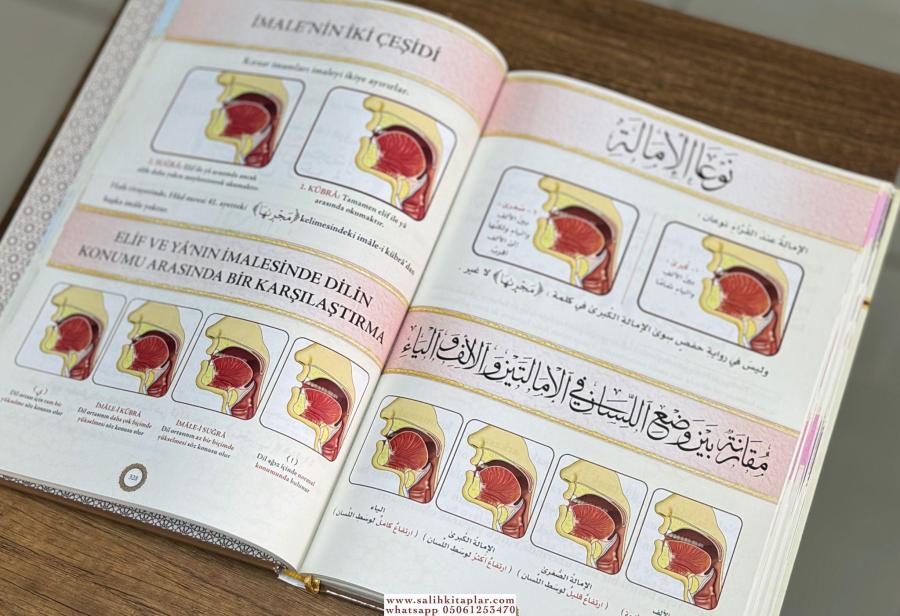 İMALE'NİN İKİ ÇEŞİDİ
Kıraat imamları imaleyi ikiye ayırırlar.
2. SUĞRÂ: Elif ile yâ arasında ancak
elife daha yakın meyletmek okumaktır.
1. KÜBRÂ: Tamamen elif ile yâ
arasında okumaktır.
Hafs rivayetinde, Hûd suresi 41. ayetteki ﴿مَجْرٰىهَا﴾ kelimesindeki imâle-i kübrâ'dan
başka imâle yoktur.
ELİF VE YÂ'NIN İMALESİNDE DİLİN
KONUMU ARASINDA BİR KARŞILAŞTIRMA
(ي)
Dil ortası için tam bir
yükselme söz konusu olur
İMÂLE-İ KÜBRÂ
Dil ortasının daha çok biçimde
yükselmesi söz konusu olur
İMÂLE-İ SUĞRÂ
Dil ortasının az bir biçimde
yükselmesi söz konusu olur
(ا)
Dil ağız içinde normal
konumunda bulunur
328
نَوْعَا الْإِمَالَةِ
الإمالة عند القُرَّاء نوعان :
١- كُبرى :
بين الألف
والياء تمامًا
٢- صُغرى :
بين الألف
والياء ولكنها
إلى الألف
أقرب
وليس في رواية حفص سوى الإمالة الكبرى في كلمة : ﴿مَجْرٰىهَا﴾ لا غير .
مُقَارَنَةٌ بَيْنَ وَضْعِ اللِّسَانِ فِي الْإِمَالَتَيْنِ وَالْأَلِفِ وَالْيَاءِ
الياء
( ارتفاعٌ كاملٌ لوسَط اللِّسان )
الإمالة الكُبرىٰ
( ارتفاعٌ أكثرُ لوسَط اللِّسان )
الإمالة الصُّغرىٰ
( ارتفاعٌ قليلٌ لوسَط اللِّسان )
الألف
www.salihkitaplar.com
whatsapp 05061253470